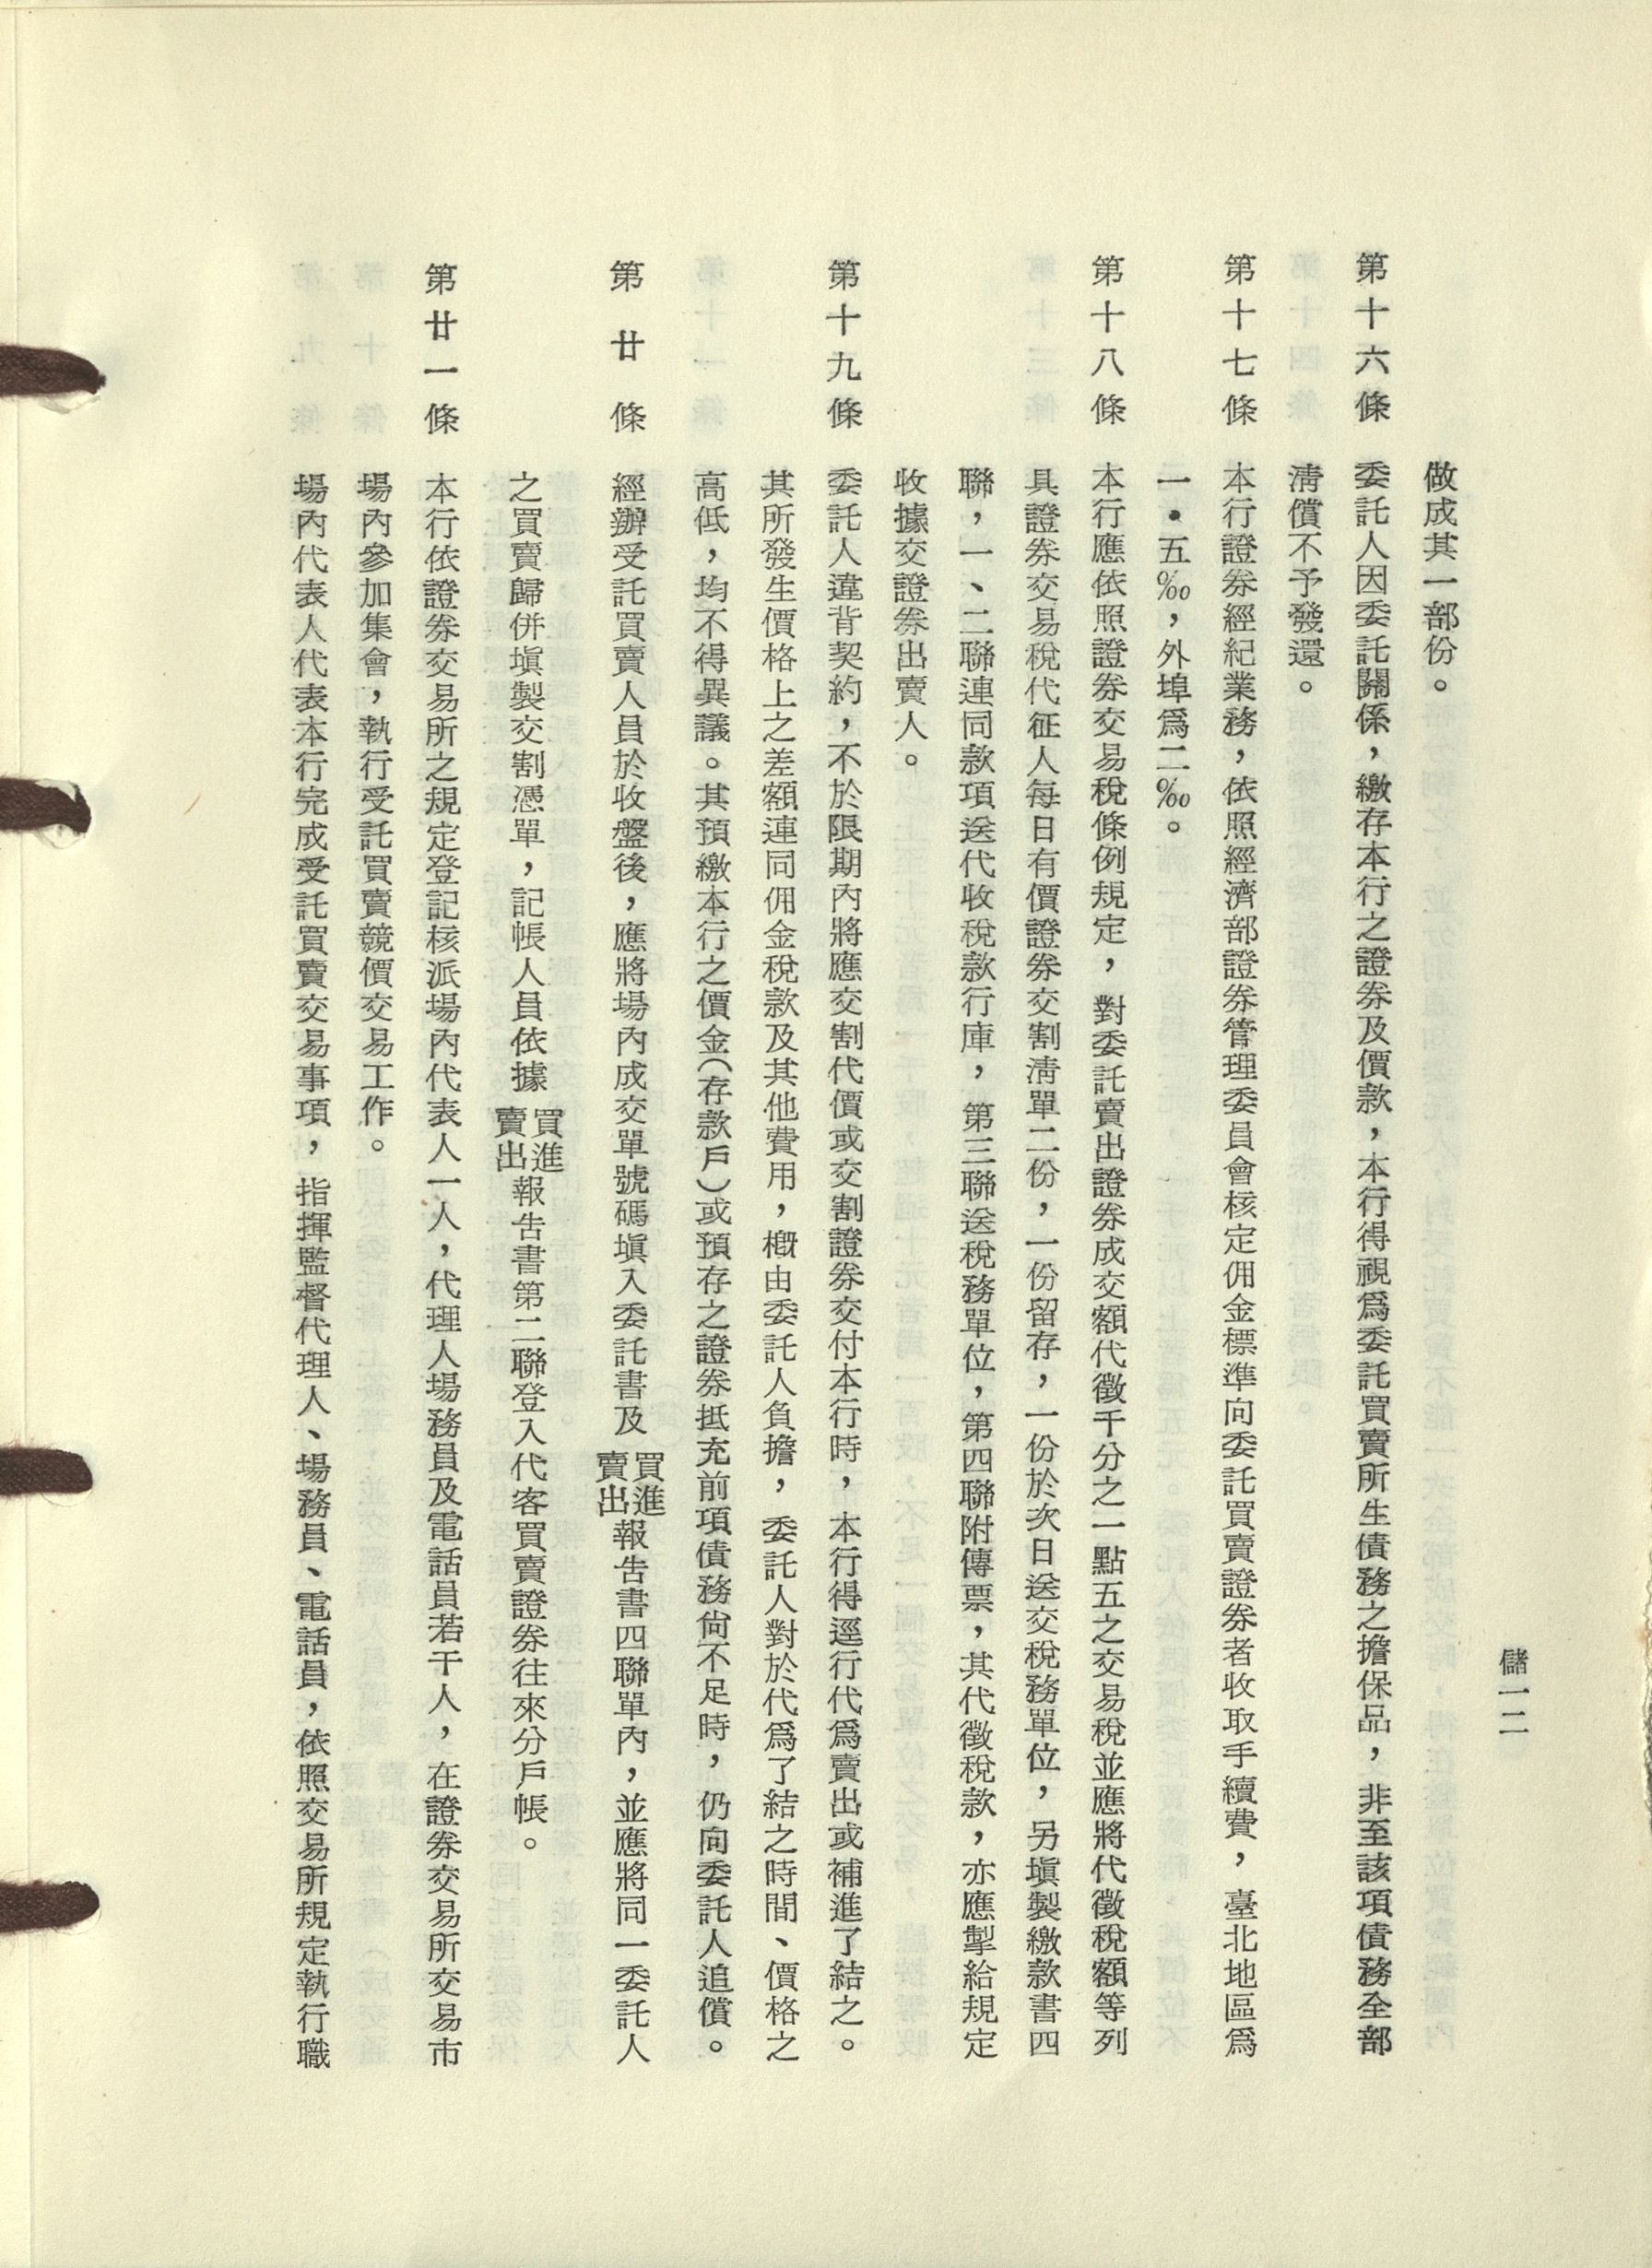 儲一二
做成其一部份。
第十六條　委託人因委託關係，繳存本行之證券及價款，本行得視爲委託買賣所生債務之擔保品，非至該項債務全部
清償不予發還。
第十七條　本行證券經紀業務，依照經濟部證券管理委員會核定佣金標準向委託買賣證券者收取手續費，臺北地區爲
一・五‰，外埠爲二‰。
第十八條　本行應依照證券交易稅條例規定，對委託賣出證券成交額代徵千分之一點五之交易稅並應將代徵稅額等列
具證券交易稅代征人每日有價證券交割清單二份，一份留存，一份於次日送交稅務單位，另塡製繳款書四
聯，一、二聯連同款項送代收稅款行庫，第三聯送稅務單位，第四聯附傳票，其代徵稅款，亦應掣給規定
收據交證券出賣人。
第十九條　委託人違背契約，不於限期內將應交割代價或交割證券交付本行時，本行得逕行代爲賣出或補進了結之。
其所發生價格上之差額連同佣金稅款及其他費用，槪由委託人負擔，委託人對於代爲了結之時間、價格之
高低，均不得異議。其預繳本行之價金（存款戶）或預存之證券抵充前項債務尙不足時，仍向委託人追償。
第廿條　經辦受託買賣人員於收盤後，應將場內成交單號碼塡入委託書及買進賣出報告書四聯單內，並應將同一委託人
之買賣歸併塡製交割憑單，記帳人員依據買進賣出報告書第二聯登入代客買賣證券往來分戶帳。
第廿一條　本行依證券交易所之規定登記核派場內代表人一人，代理人場務員及電話員若干人，在證券交易所交易市
場內參加集會，執行受託買賣競價交易工作。
場內代表人代表本行完成受託買賣交易事項，指揮監督代理人、場務員、電話員，依照交易所規定執行職